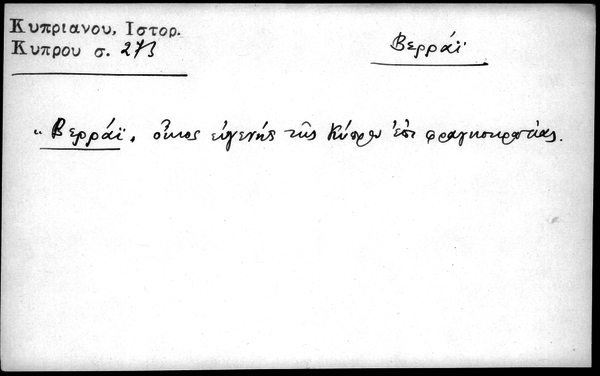 Κυπριανου, Ιστορ.
Κυπρου σ. 273
Βερράϊ
"Βερράϊ, οἶκος εὐγενής τῆς Κύπρου ἐπί φραγκοκρατίας.